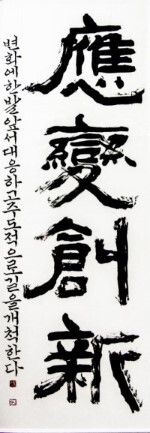 應變創新
변화에 한발 앞서 대응하고 주도적으로 길을 개척한다